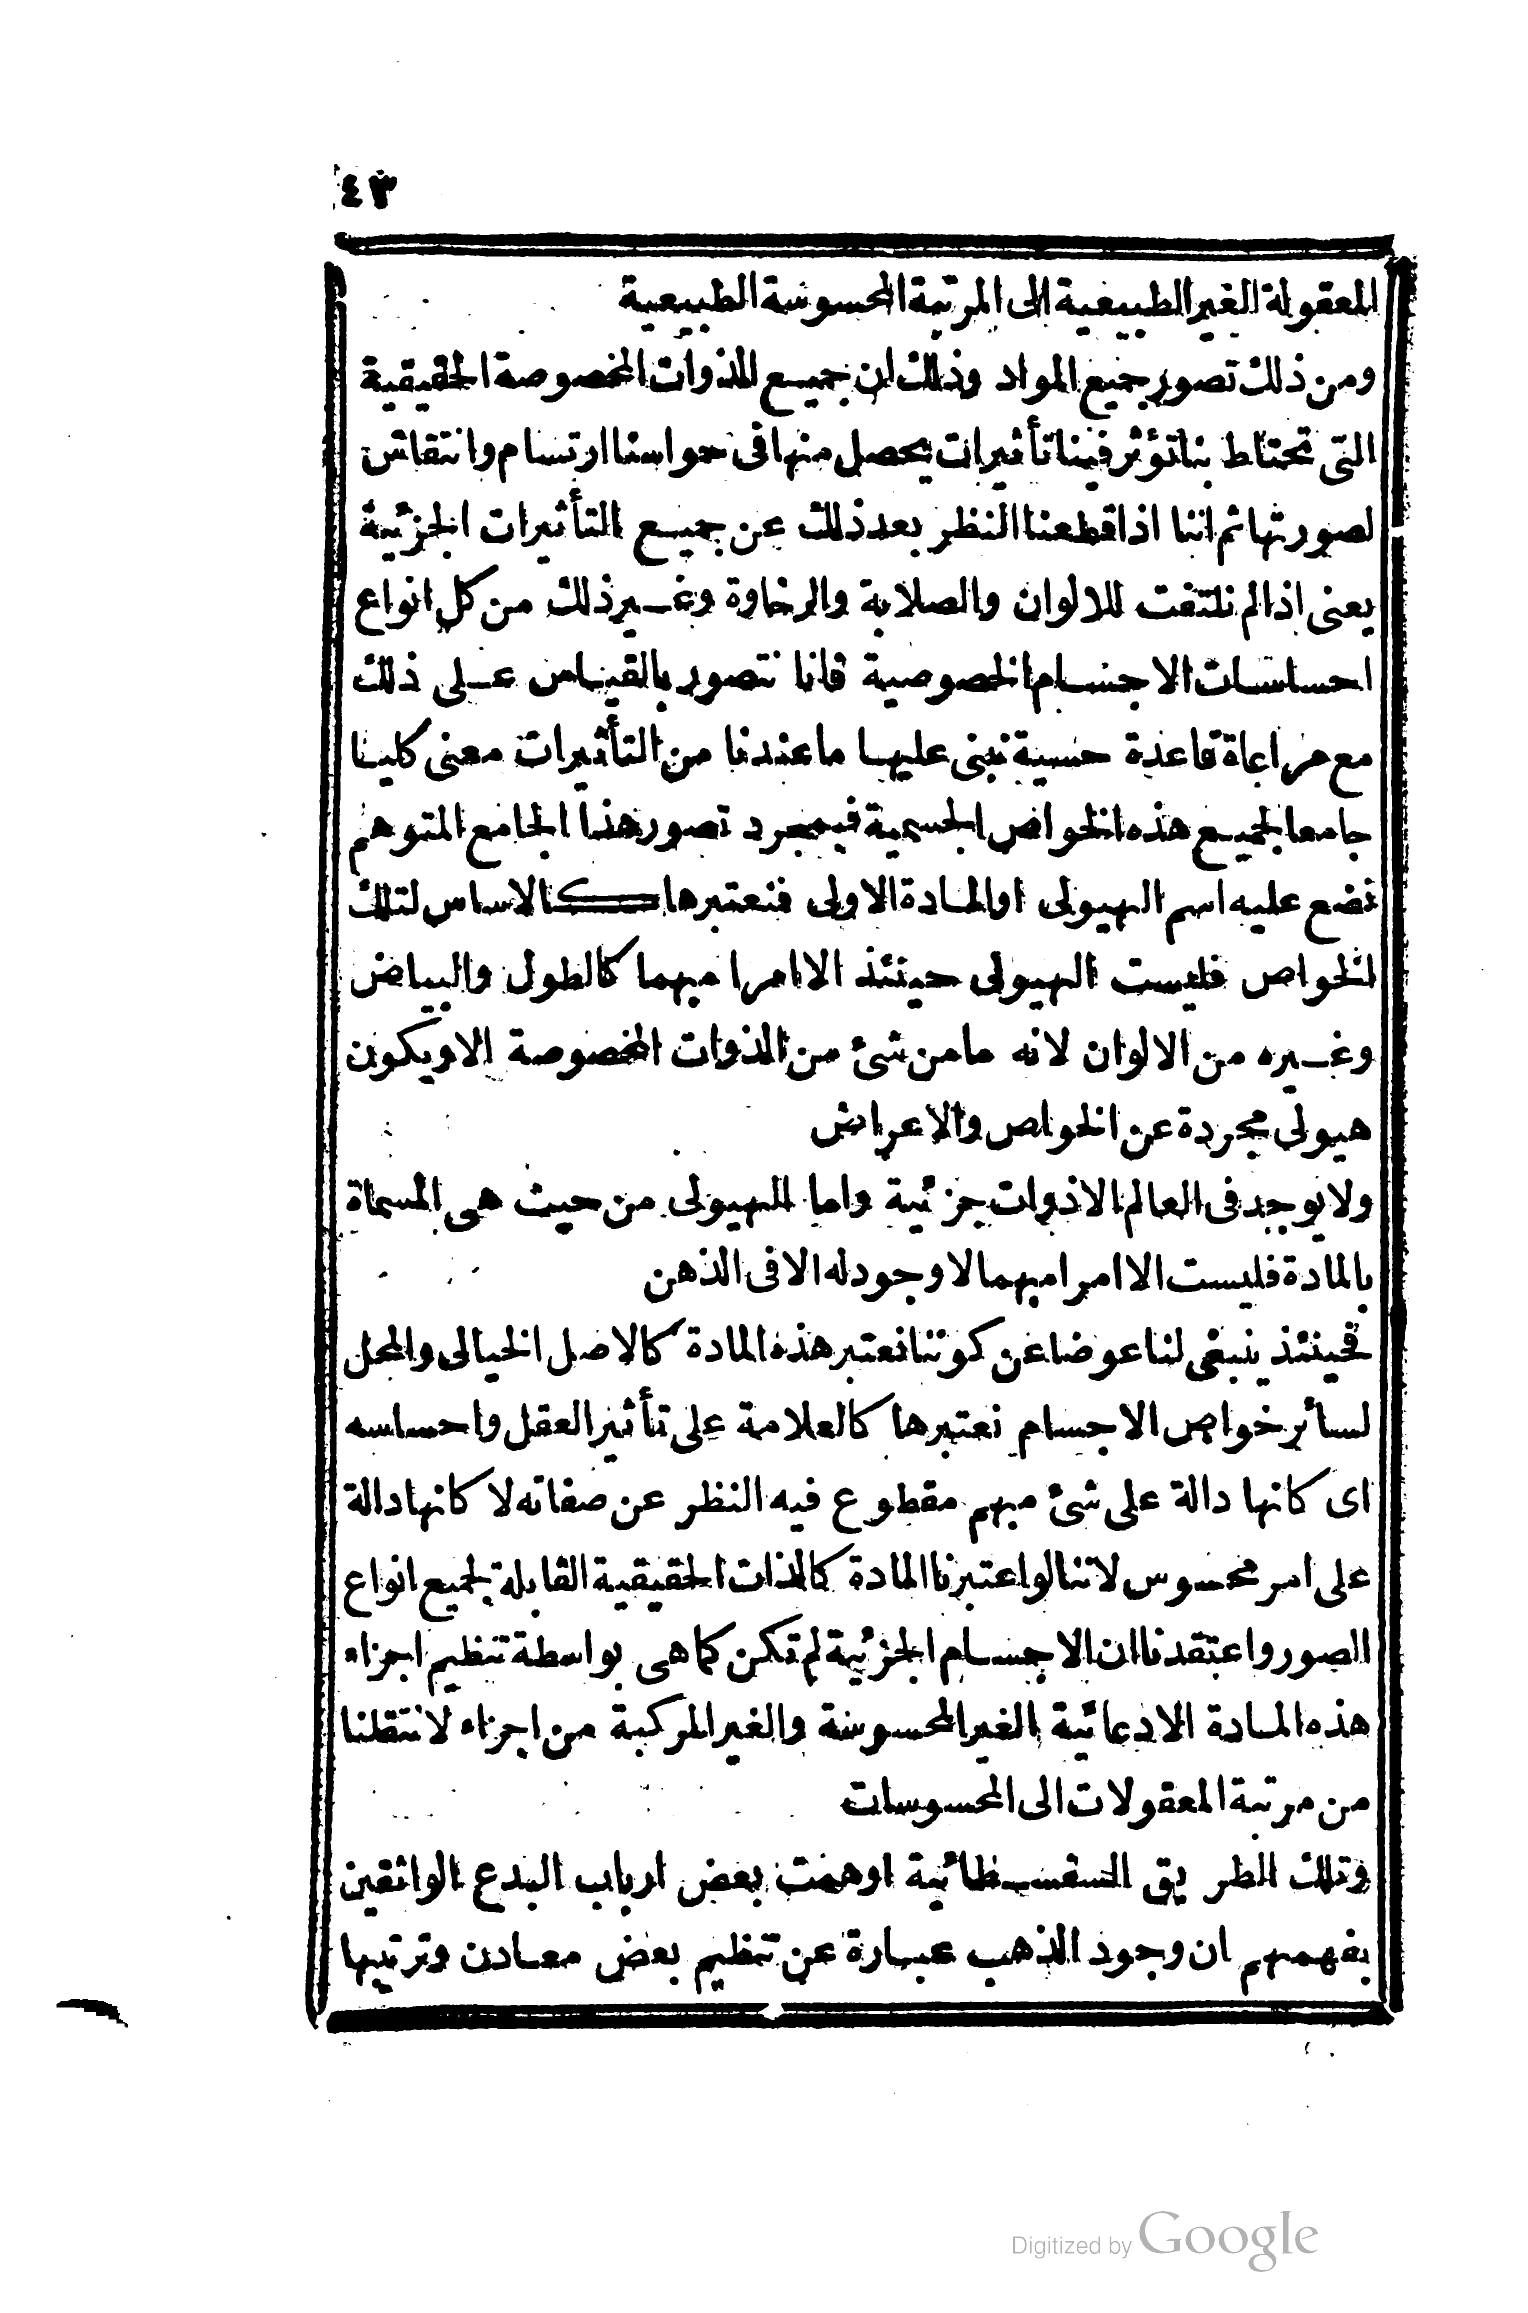 ٤٣
المعقولة الغير الطبيعية الى المرتبة المحسوسة الطبيعية
ومن ذلك تصور جميع المواد وذلك ان جميع الذوات المخصوصة الحقيقية
التى تحتاط بنا تؤثر فينا تأثيرات يحصل منها فى حواسنا ارتسام وانتقاش
لصورتها ثم اننا اذا قطعنا النظر بعد ذلك عن جميع التأثيرات الجزئية
يعنى اذا لم نلتفت للالوان والصلابة والرخاوة وغير ذلك من كل انواع
احساسات الاجسام الخصوصية فانا نتصور بالقياس على ذلك
مع مراعاة قاعدة حسية نبنى عليها ما عندنا من التأثيرات معنى كليا
جامعا لجميع هذه الخواص الجسمية فبمجرد تصور هذا الجامع المتوهم
نضع عليه اسم الهيولى او المادة الاولى فنعتبرها كالاساس لتلك
الخواص فليست الهيولى حينئذ الا امرا مبهما كالطول والبياض
وغيره من الالوان لانه ما من شئ من الذوات المخصوصة الا ويكون
هيولى مجردة عن الخواص والاعراض
ولا يوجد فى العالم الا ذوات جزئية واما الهيولى من حيث هى المسماة
بالمادة فليست الا امرا مبهما لا وجود له الا فى الذهن
فحينئذ ينبغى لنا عوضا عن كوننا نعتبر هذه المادة كالاصل الخيالى والمحل
لسائر خواص الاجسام نعتبرها كالعلامة على تأثير العقل واحساسه
اى كانها دالة على شئ مبهم مقطوع فيه النظر عن صفاته لا كانها دالة
على امر محسوس لاننا لو اعتبرنا المادة كالذات الحقيقية القابلة لجميع انواع
الصور واعتقدنا ان الاجسام الجزئية لم تكن كما هى بواسطة تنظيم اجزاء
هذه المادة الادعائية الغير المحسوسة والغير المركبة من اجزاء لانتقلنا
من مرتبة المعقولات الى المحسوسات
وتلك الطريق السفسطائية اوهمت بعض ارباب البدع الواثقين
بفهمهم ان وجود الذهب عبارة عن تنظيم بعض معادن وترتيبها
Digitized by Google